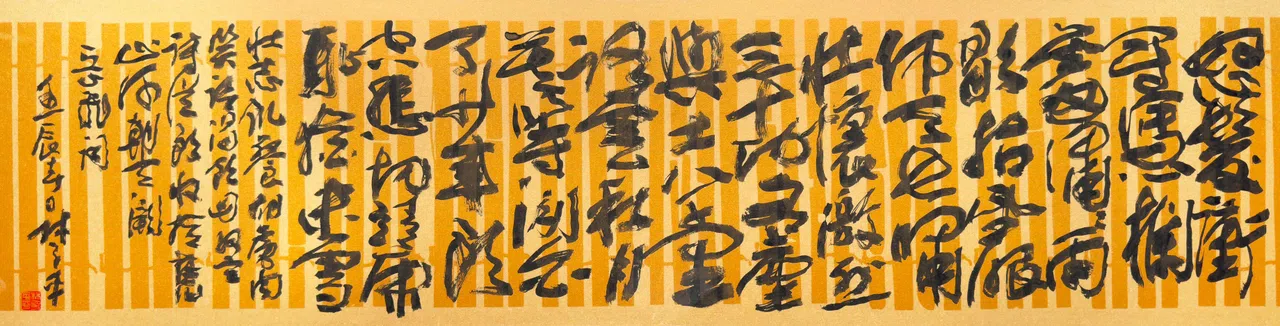 怒髮衝
冠憑欄
處瀟瀟雨
歇抬望眼
仰天長嘯
壯懷激烈
三十功名塵
與土八千里
路雲和月
莫等閑白
了少年頭
空悲切靖康
恥猶未雪
壯志飢餐胡虜肉
笑談渴飲匈奴血
待從頭收拾舊
山河朝天闕
岳飛詞
壬辰春日林